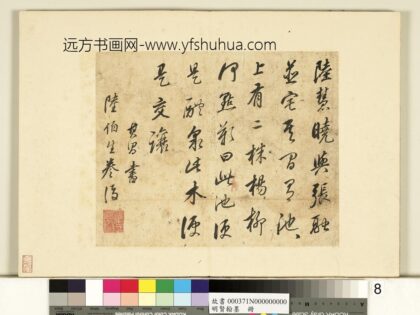 远方书画网-www.yfshuhua.com
陸慧曉與張融
並宅其間有池
上有二株楊柳
何點歎曰此池便
是醴泉此木便
是交讓
其昌書
陸伯生
8
故書 000371N000000000
明賢翰墨 冊